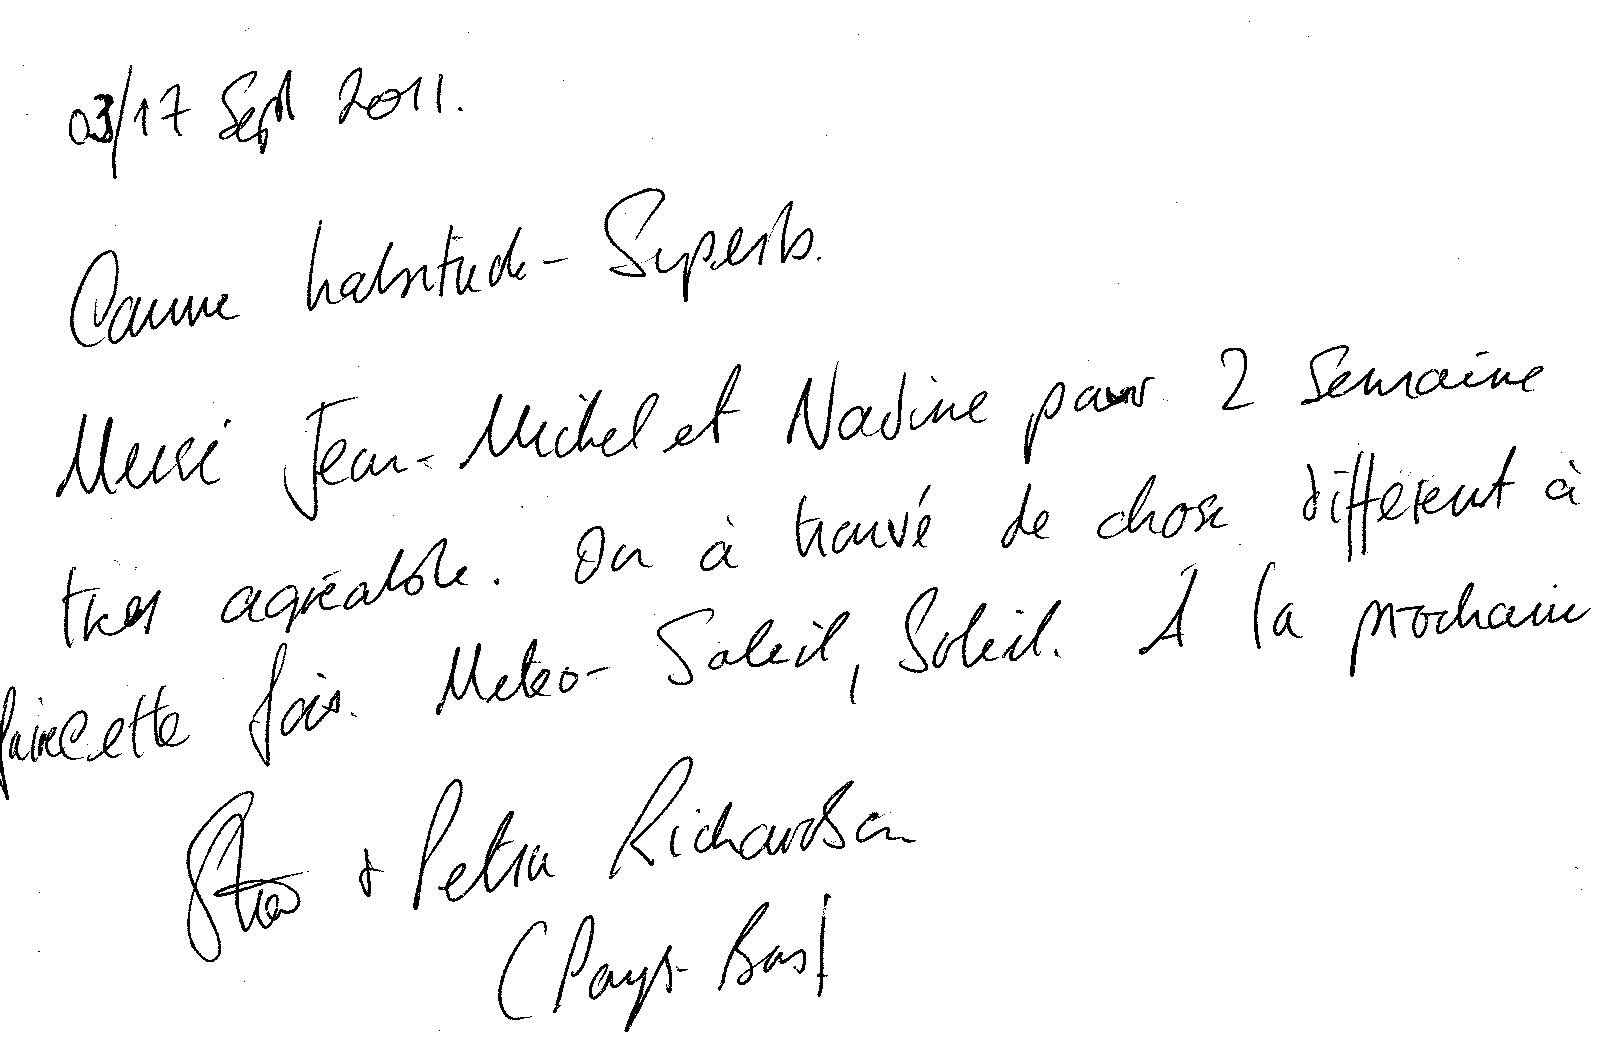 03/17 Sept 2011.
Comme habitude - Superb.
Merci Jean-Michel et Nadine pour 2 Semaine
tres agréable. On à trouvé de chose différent à
faire cette fois. Meteo - Soleil, Soleil. A la prochain
& Petra Richardson
(Pays-Bas)